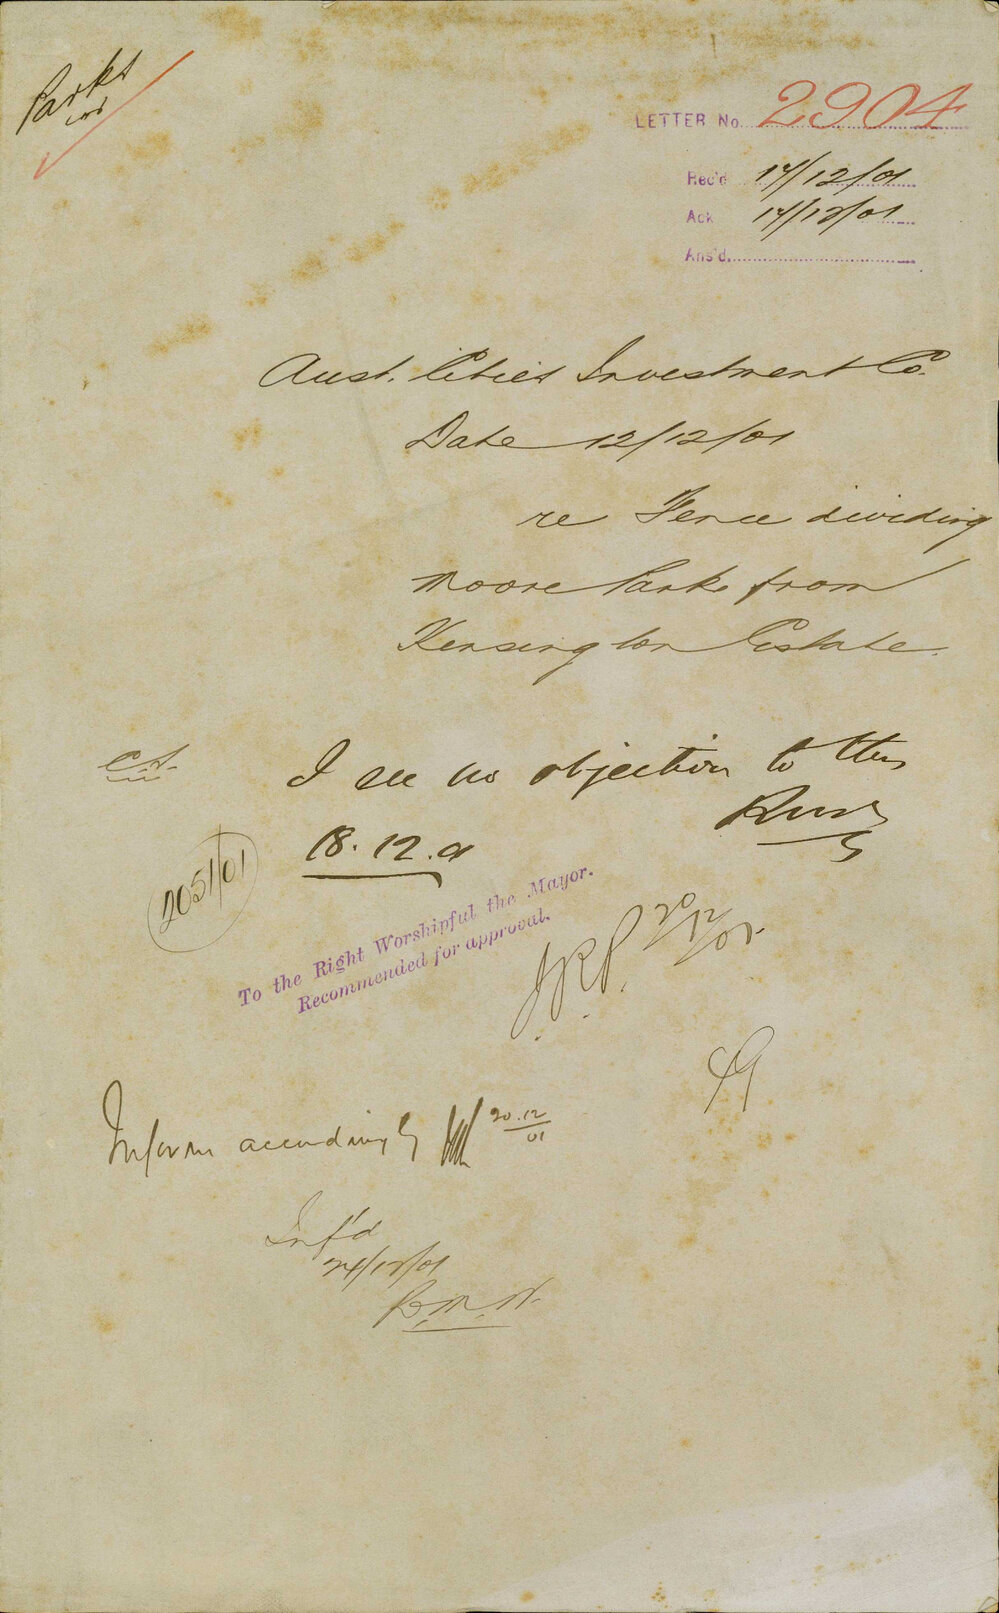 Parks
LETTER No. 2904
Rec'd 17/12/01
Ack 17/12/01
Ans'd.
Aust. Cities Investment Co.
Date 12/12/01
re Fence dividing
Moore Park from
Kensington Estate.
I see no objection to this
18.12.01
2051/01
To the Right Worshipful the Mayor.
Recommended for approval.
20/12/01
Inform accordingly 20.12/01
Inf'd
24/12/01